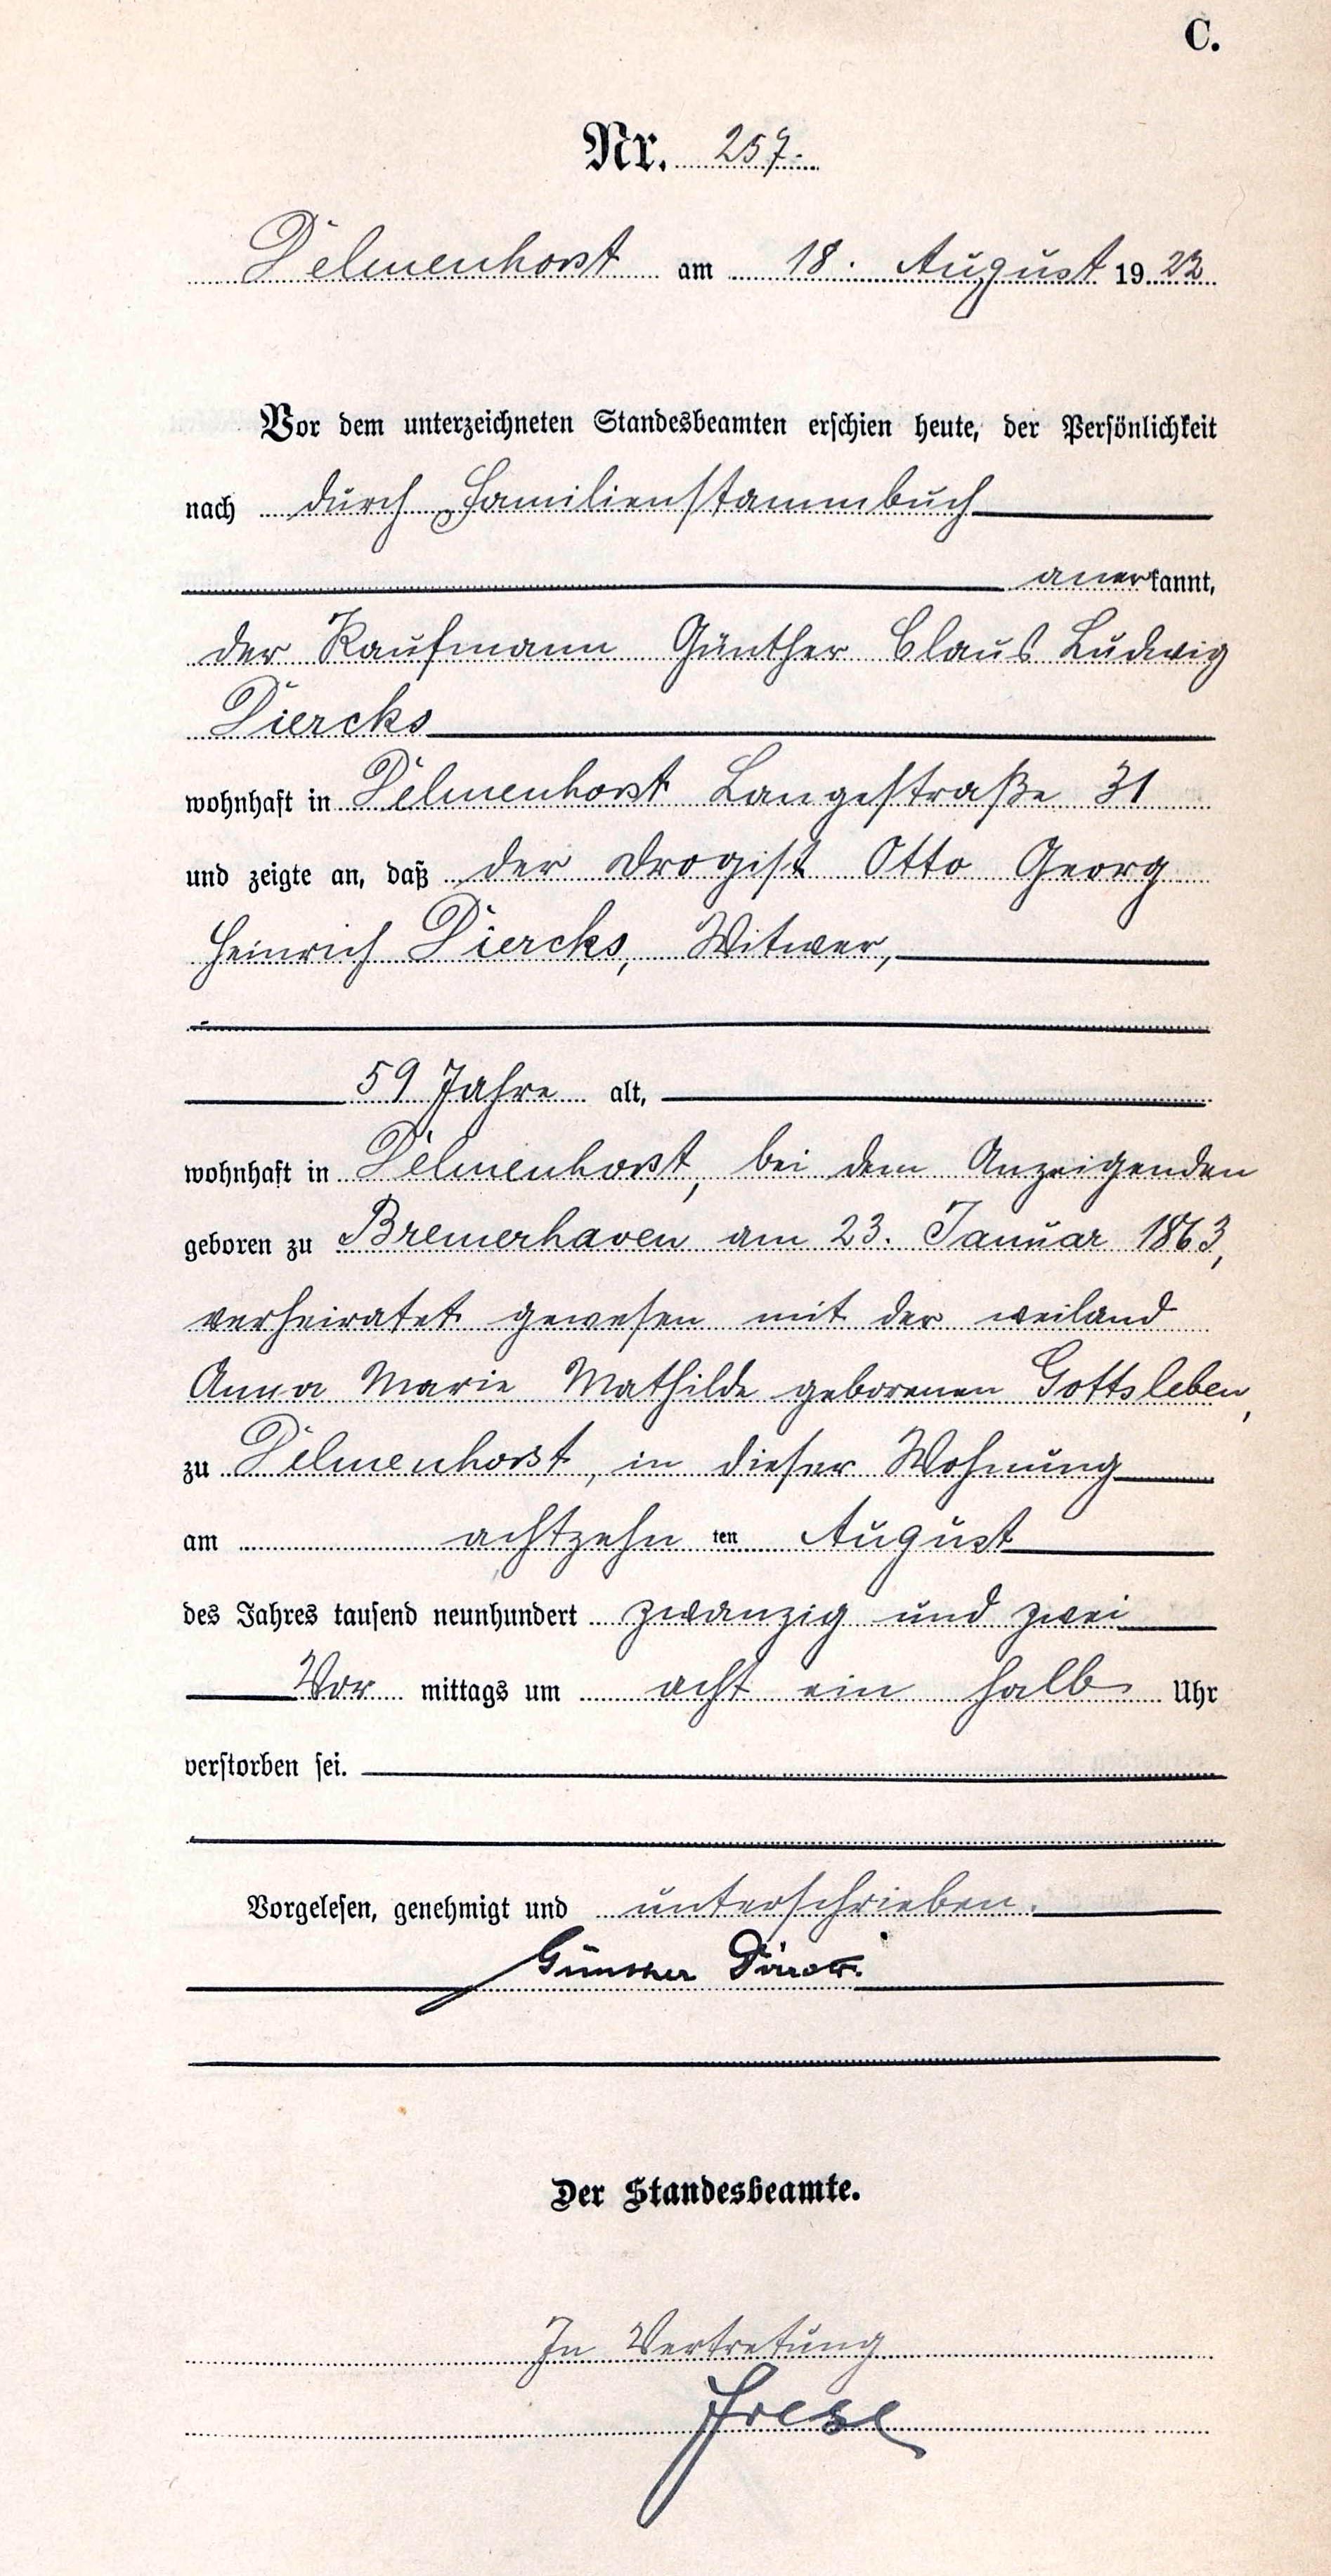 C.
Nr. 257.
Delmenhorst am 18. August 1922
Vor dem unterzeichneten Standesbeamten erschien heute, der Persönlichkeit
nach durch Familienstammbuch
anerkannt,
der Kaufmann Günther Claus Ludwig
Diercks
wohnhaft in Delmenhorst Langestraße 31
und zeigte an, daß der Drogist Otto Georg
Heinrich Diercks, Witwer,
59 Jahre alt,
wohnhaft in Delmenhorst, bei dem Anzeigenden
geboren zu Bremerhaven am 23. Januar 1863,
verheiratet gewesen mit der weiland
Anna Marie Mathilde geborenen Gottsleben,
zu Delmenhorst, in dieser Wohnung
am achtzehn ten August
des Jahres tausend neunhundert zwanzig und zwei
Vor mittags um acht ein halb Uhr
verstorben sei.
Vorgelesen, genehmigt und unterschrieben.
Günther Diercks.
Der Standesbeamte.
In Vertretung
Frese